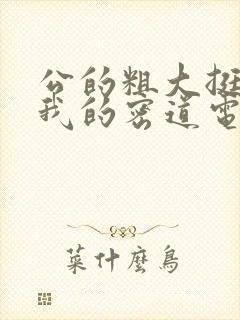 公的粗大挺
我的密道電
菜什麼鳥